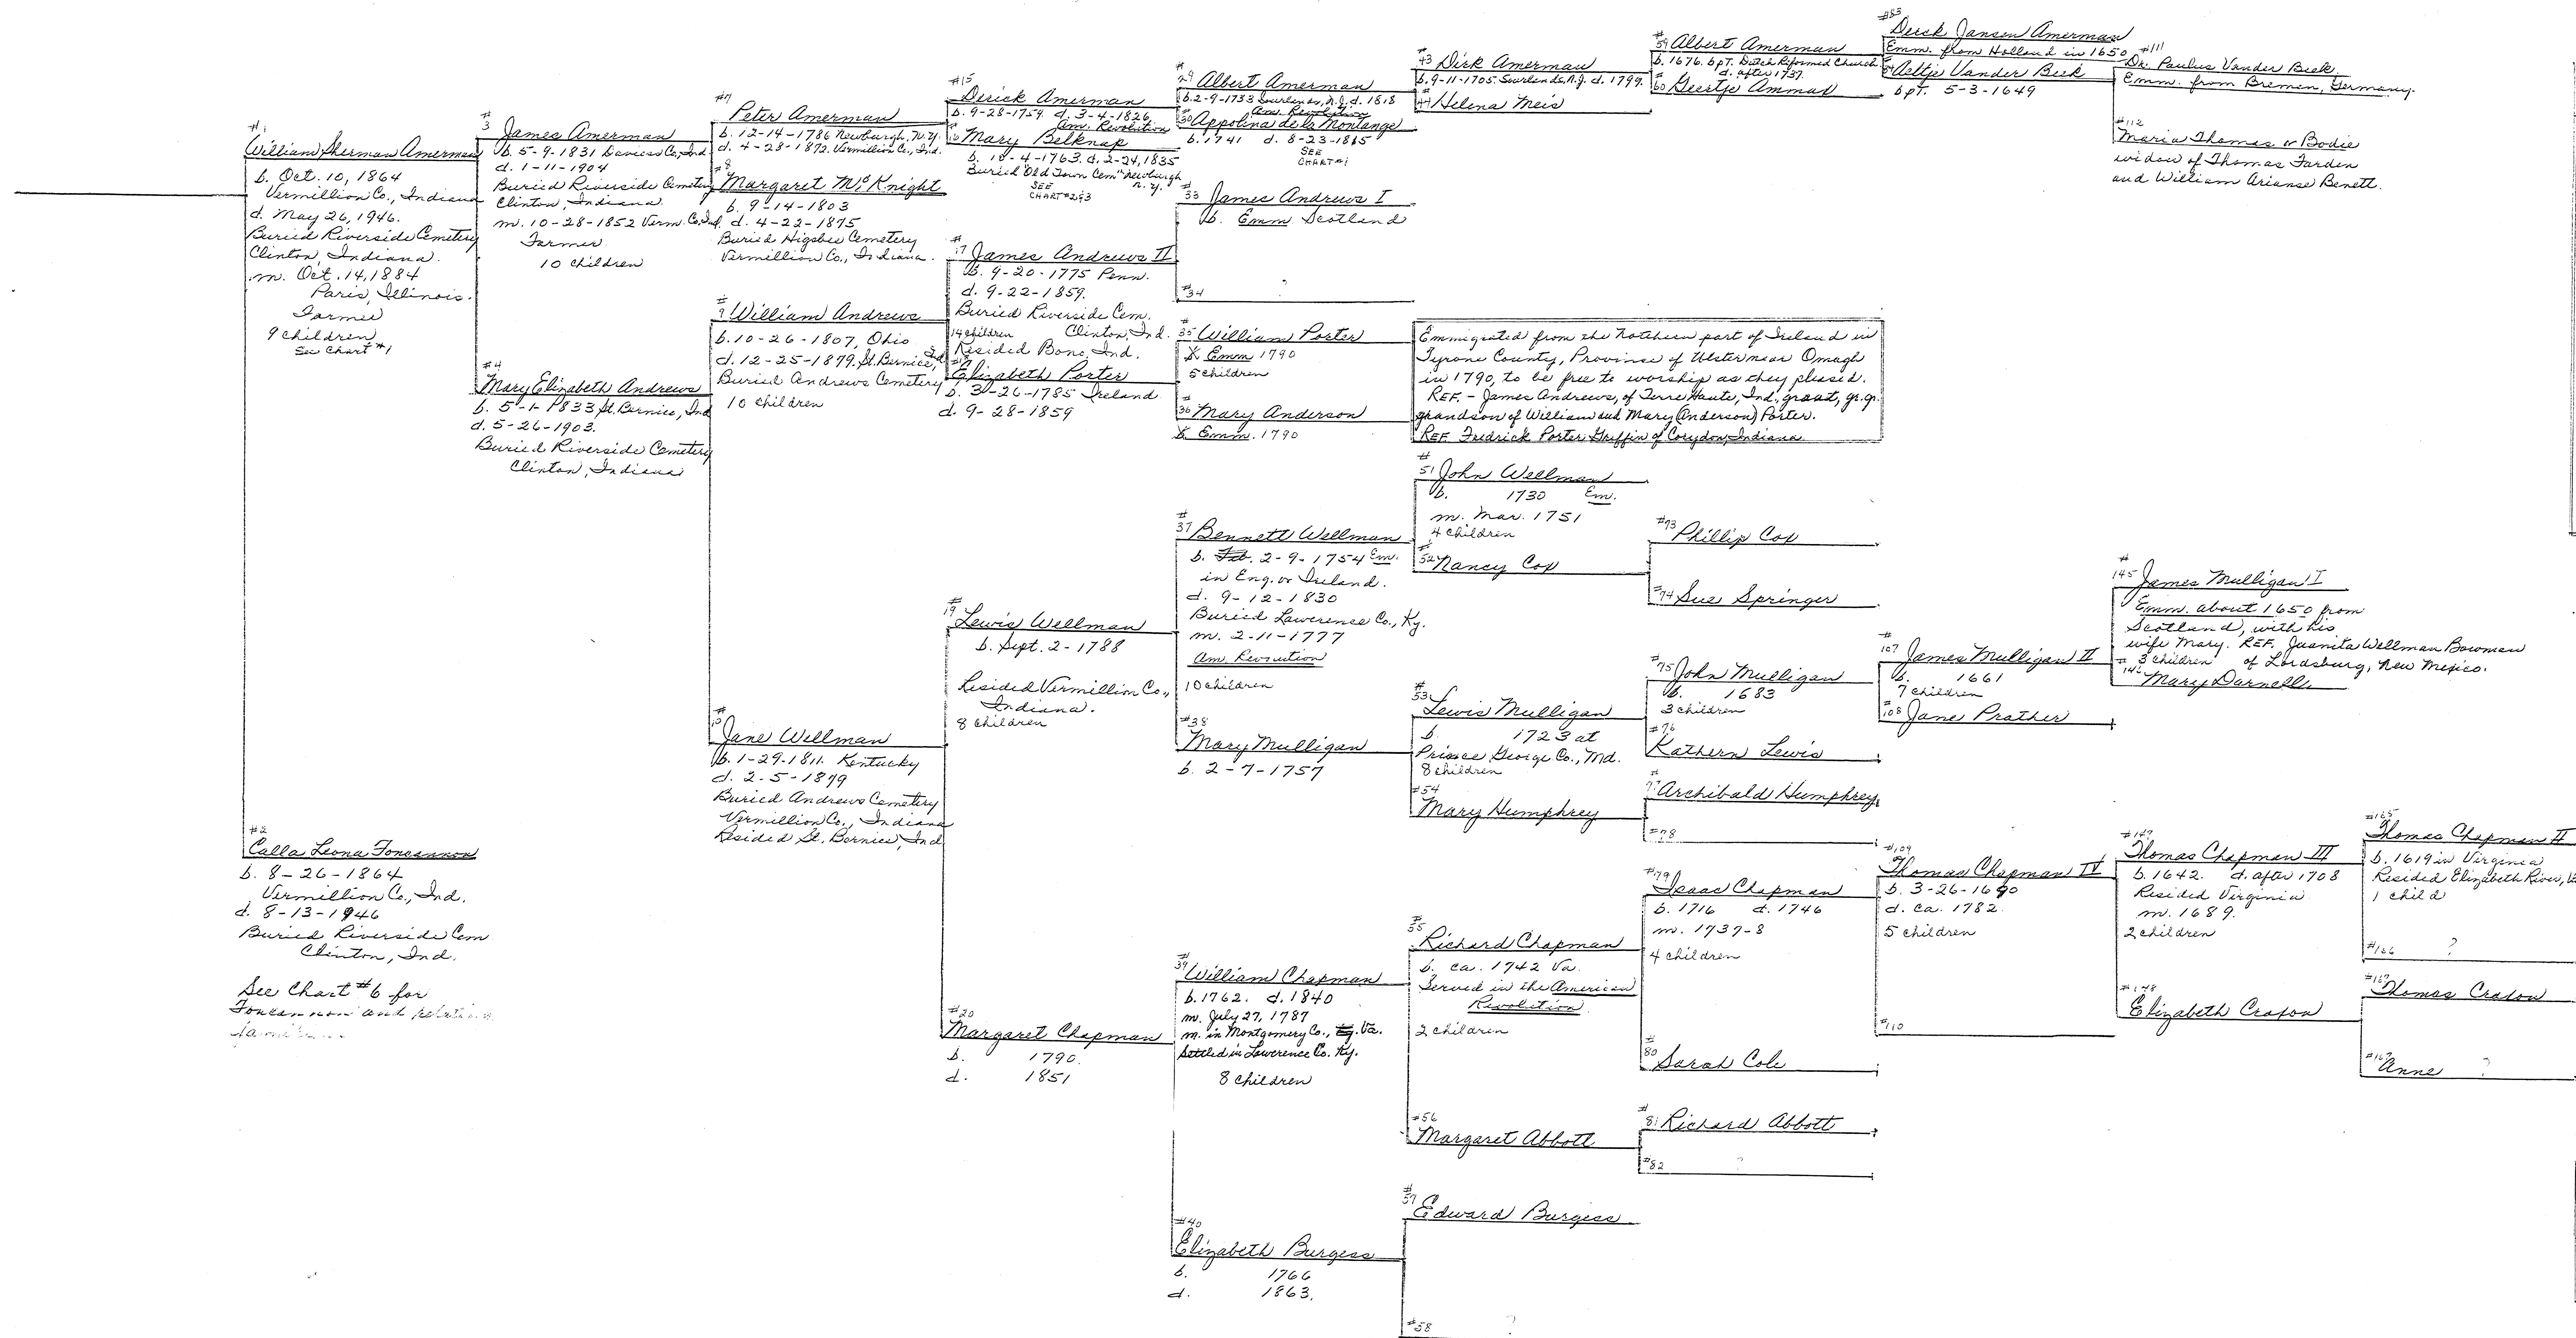 #1
William Sherman Amerman
b. Oct. 10, 1864
Vermillion Co., Indiana
d. May 26, 1946.
Buried Riverside Cemetery
Clinton, Indiana.
m. Oct. 14, 1884
Paris, Illinois.
Farmer
9 children
See Chart #1
#2
Calla Leona Foncannon
b. 8-26-1864
Vermillion Co., Ind.
d. 8-13-1946
Buried Riverside Cem
Clinton, Ind.
See Chart #6 for
Foncannon and
#3
James Amerman
b. 5-9-1831 Daviess Co., Ind
d. 1-11-1904
Buried Riverside Cemetery
Clinton, Indiana.
m. 10-28-1852 Verm. Co. Ind.
Farmer
10 children
#4
Mary Elizabeth Andrews
b. 5-1-1833 St. Bernice, Ind
d. 5-26-1903.
Buried Riverside Cemetery
Clinton, Indiana
#7
Peter Amerman
b. 12-14-1786 Newburgh, N.Y.
d. 4-28-1872. Vermillion Co., Ind.
#8
Margaret McKnight
b. 9-14-1803
d. 4-22-1875
Buried Higsbee Cemetery
Vermillion Co., Indiana.
#9
William Andrews
b. 10-26-1807, Ohio
d. 12-25-1879. St. Bernice, Ind
Buried Andrews Cemetery
10 children
#10
Jane Wellman
b. 1-29-1811. Kentucky
d. 2-5-1879
Buried Andrews Cemetery
Vermillion Co., Indiana
Resided St. Bernice, Ind
#15
Derick Amerman
b. 9-28-1759. d. 3-4-1826.
Am. Revolution
#16
Mary Belknap
b. 10-4-1763. d. 2-24, 1835
Buried "Old Town Cem" Newburgh
N.Y.
SEE
CHART #2&3
#17
James Andrews II
b. 9-20-1775 Penn.
d. 9-22-1859.
Buried Riverside Cem.
14 children Clinton, Ind.
Resided Bono, Ind.
Elizabeth Porter
b. 3-26-1785 Ireland
d. 9-28-1859
#19
Lewis Wellman
b. Sept. 2-1788
Resided Vermillion Co.,
Indiana.
8 children
#20
Margaret Chapman
b. 1790.
d. 1851
#29
Albert Amerman
b. 2-9-1733 Sourlands, N.J. d. 1818
Am. Revolution
#30
Appolina de la Montange
b. 1741 d. 8-23-1815
SEE
CHART #1
#33
James Andrews I
b. Emm Scotland
#34 ?
#35 William Porter
b. Emm 1790
5 children
#36 Mary Anderson
b. Emm. 1790
#37
Bennett Wellman
b. Feb. 2-9-1754 Em.
in Eng. or Ireland.
d. 9-12-1830
Buried Lawerence Co., Ky.
m. 2-11-1777
Am. Revoution
10 children
#38
Mary Mulligan
b. 2-7-1757
#39
William Chapman
b. 1762. d. 1840
m. July 27, 1787
m. in Montgomery Co., Ky. Va.
Settled in Lawerence Co. Ky.
8 children
#40
Elizabeth Burgess
b. 1766
d. 1863.
#43 Dirk Amerman
b. 9-11-1705. Sourlands, N.J. d. 1799.
#44 Helena Meis
Emmigrated from the Nothern part of Ireland in
Tyrone County, Province of Ulster near Omagh
in 1790, to be free to worship as they pleased.
REF. - James Andrews, of Terre Haute, Ind., great, gr. gr.
grandson of William and Mary (Anderson) Porter.
REF. Fredrick Porter Griffin of Corydon, Indiana
#51 John Wellman
b. 1730 Em.
m. Mar. 1751
4 children
#52 Nancy Cox
#53
Lewis Mulligan
b. 1723 at
Prince George Co., Md.
8 children
#54
Mary Humphrey
#55
Richard Chapman
b. ca. 1742 Va.
Served in the American
Revolution
2 children
#56
Margaret Abbott
#57
Edward Burgess
#58 ?
#59 Albert Amerman
b. 1676. bpt. Dutch Reformed Church
d. after 1737.
#60 Geertje Ammak
#73
Phillip Cox
#74 Sue Springer
#75 John Mulligan
b. 1683
3 children
#76
Kathern Lewis
#77
Archibald Humphrey
#78
#79
Isaac Chapman
b. 1716 d. 1746
m. 1737-8
4 children
#80
Sarah Cole
#81 Richard Abbott
#82 ?
#83
Derck Jansen Amerman
Emm. from Holland in 1650
#84 Aeltje Vander Beek
bpt. 5-3-1649
#107
James Mulligan II
b. 1661
7 children
#108 Jane Prather
#109
Thomas Chapman IV
b. 3-26-1690
d. ca. 1782.
5 children
#110
#111
Dr. Paulus Vander Beek
Emm. from Bremen, Germany.
#112
Maria Thomas or Bodie
widow of Thomas Farden
and William Arianse Benett.
#145
James Mulligan I
Emm. about 1650 from
Scotland, with his
wife Mary. REF. Juanita Wellman Bowman
3 children of Lordsburg, New Mexico.
#146 Mary Darnell
#147
Thomas Chapman III
b. 1642. d. after 1708
Resided Virginia
m. 1689.
2 children
#148
Elizabeth Crafon
#165
Thomas Chapman II
b. 1619 in Virginia
Resided Elizabeth River,
1 child
#166 ?
#167
Thomas Crafon
Anne ?